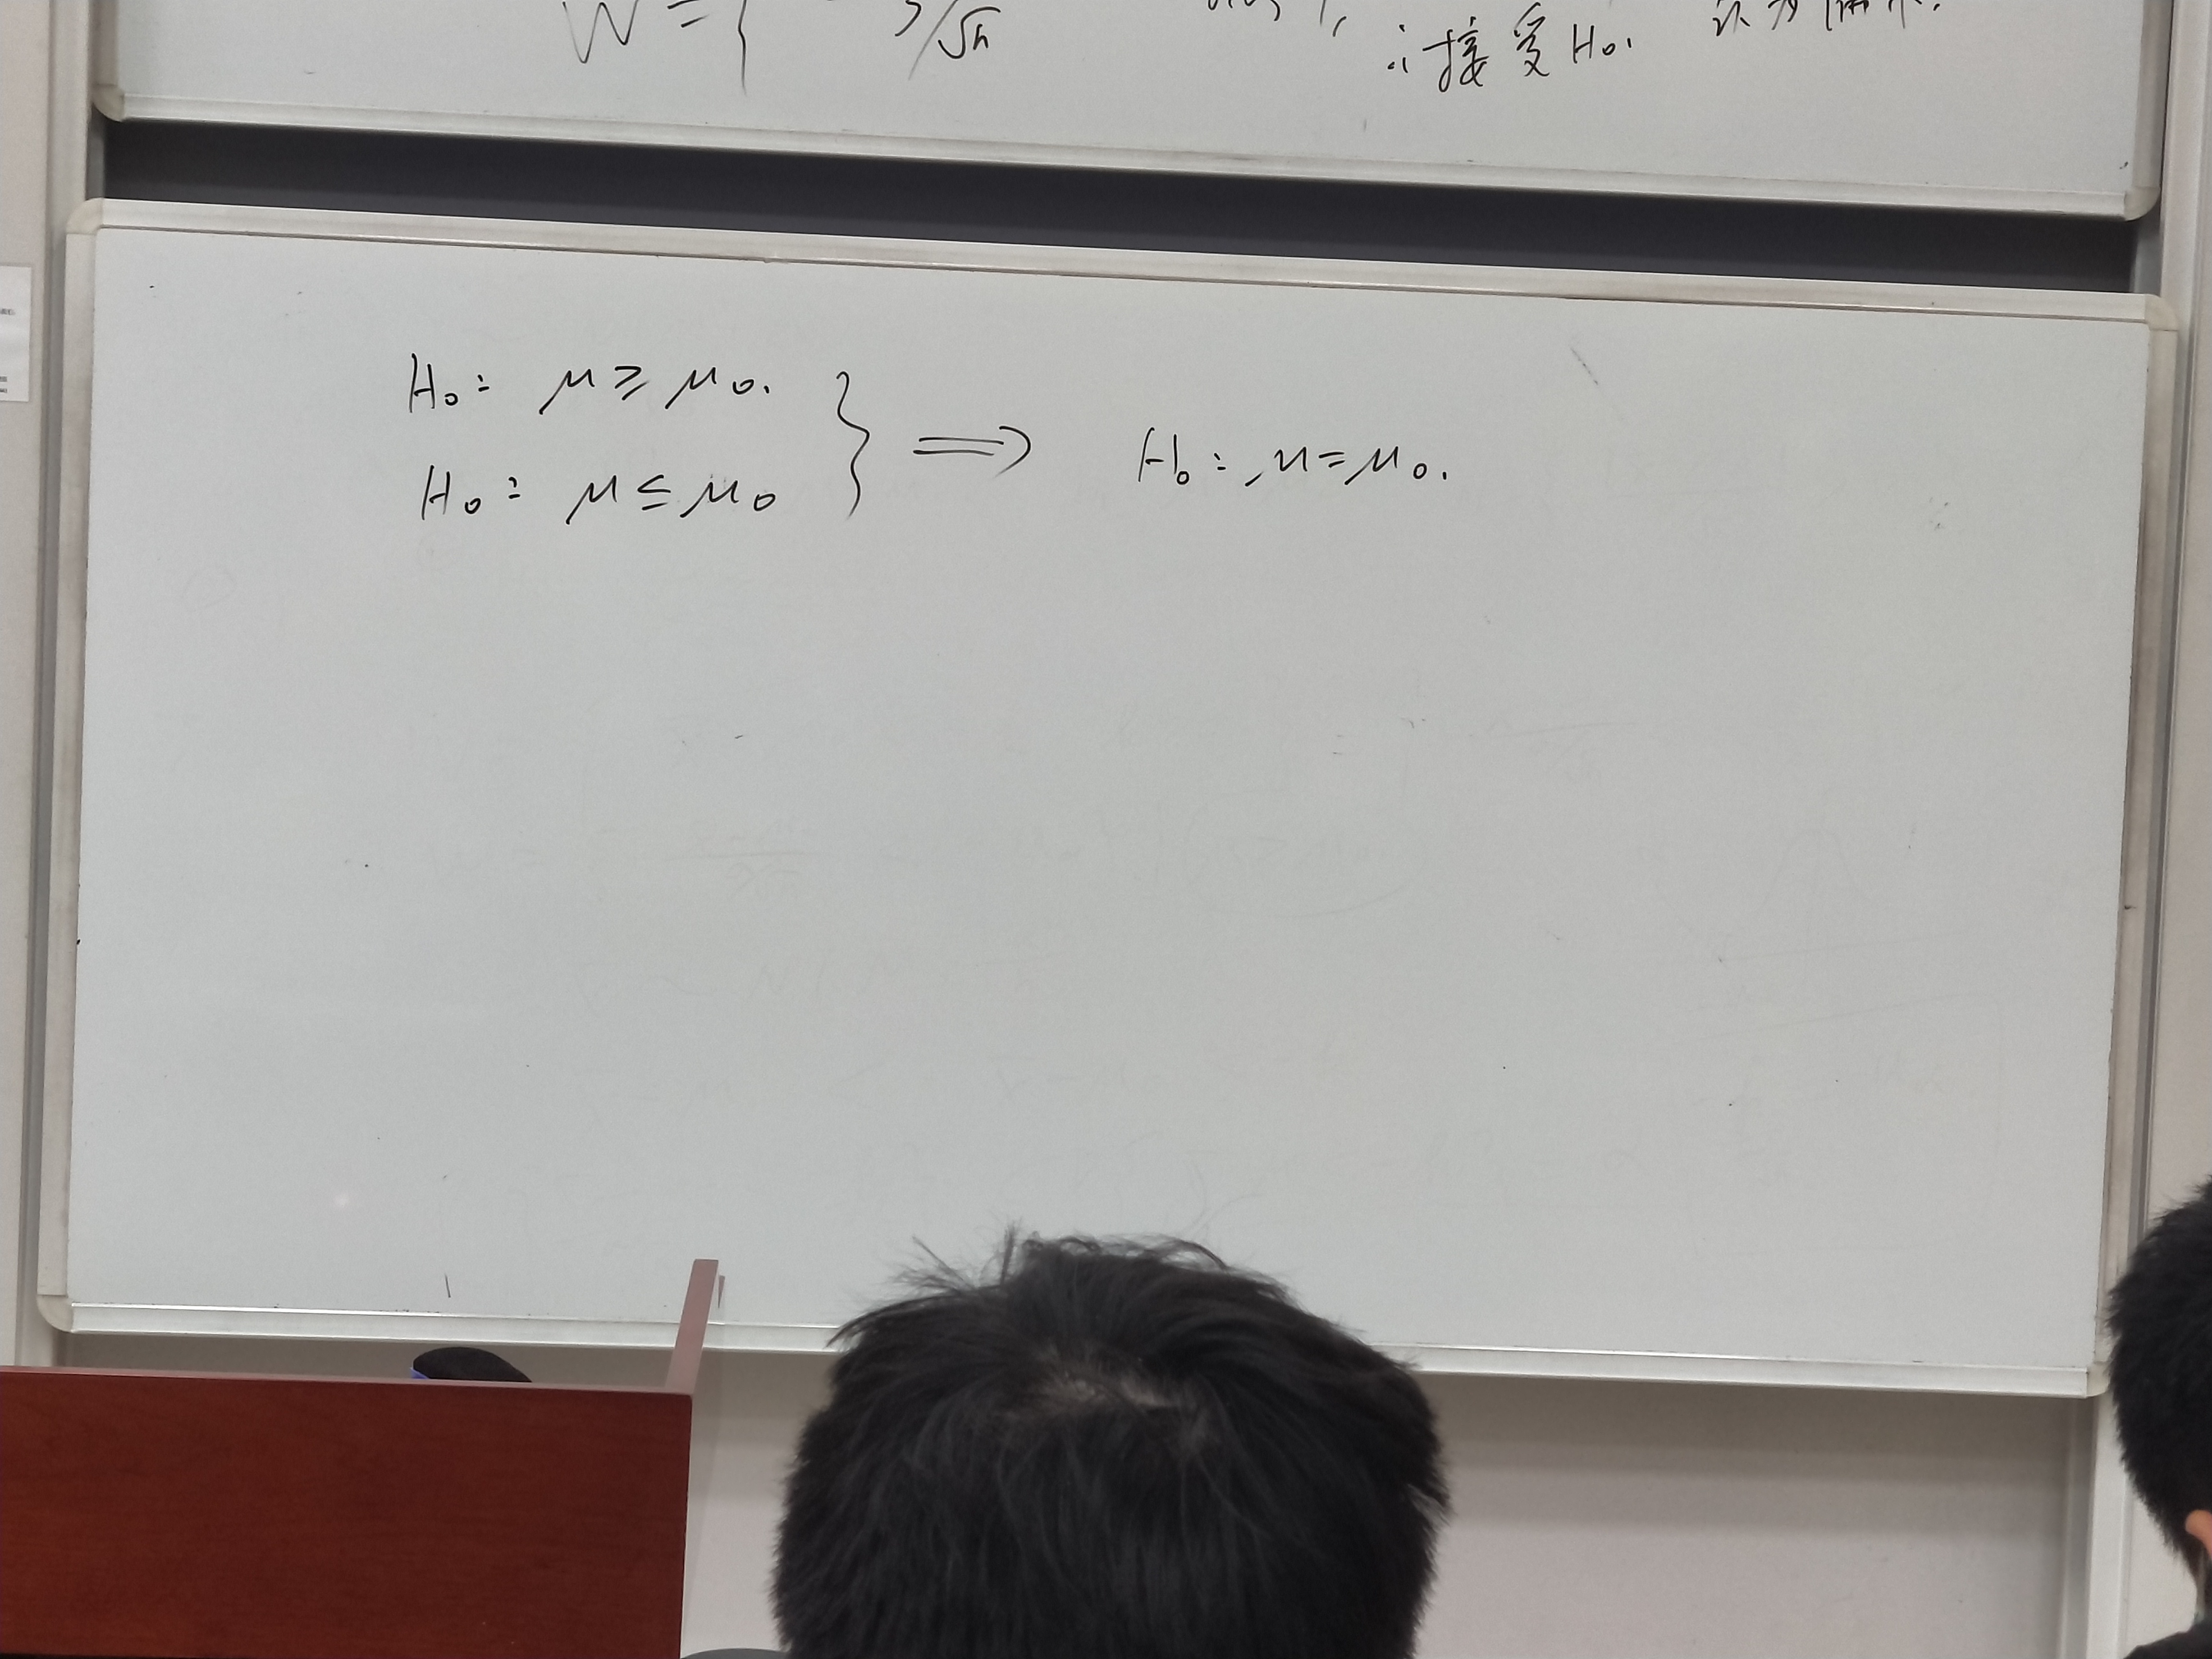 W = { /√n
∴接受 H₀.
H₀: μ ≥ μ₀.
H₀: μ ≤ μ₀
} ⟹ H₀: μ = μ₀.